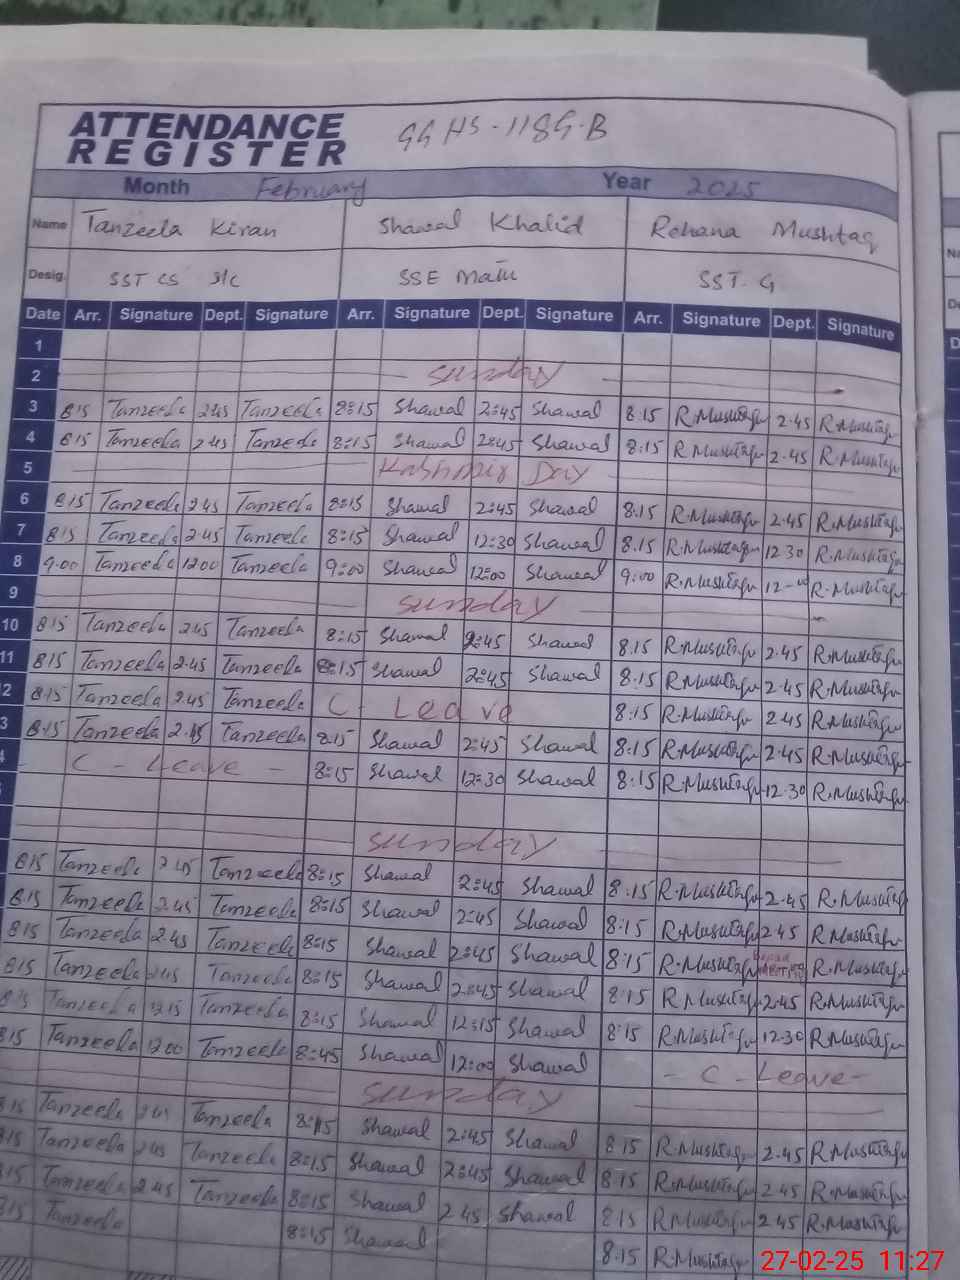 ATTENDANCE
REGISTER
GGHS-118G.B
Month February Year 2025
Name Tanzeela Kiran Shawal Khalid Rehana Mushtaq
Desig. SST CS I/C SSE Math SST. G
Date Arr. Signature Dept. Signature Arr. Signature Dept. Signature Arr. Signature Dept. Signature
1
2 Sunday
3 8:15 Tanzeela 2:45 Tanzeela 8:15 Shawal 2:45 Shawal 8.15 R.Mushtaq 2.45 R.Mushtaq
4 8:15 Tanzeela 2.45 Tanzeela 8:15 Shawal 2:45 Shawal 8.15 R.Mushtaq 2.45 R.Mushtaq
5 Kashmir Day
6 8:15 Tanzeela 2.45 Tanzeela 8:15 Shawal 2:45 Shawal 8.15 R.Mushtaq 2.45 R.Mushtaq
7 8:15 Tanzeela 2.45 Tanzeela 8:15 Shawal 12:30 Shawal 8.15 R.Mushtaq 12.30 R.Mushtaq
8 9.00 Tanzeela 12.00 Tanzeela 9:00 Shawal 12:00 Shawal 9:00 R.Mushtaq 12-00 R.Mushtaq
9 Sunday
10 8:15 Tanzeela 2.45 Tanzeela 8:15 Shawal 2:45 Shawal 8.15 R.Mushtaq 2.45 R.Mushtaq
11 8:15 Tanzeela 2.45 Tanzeela 8:15 Shawal 2:45 Shawal 8.15 R.Mushtaq 2.45 R.Mushtaq
2 8:15 Tanzeela 2.45 Tanzeela C- Leave 8.15 R.Mushtaq 2.45 R.Mushtaq
3 8:15 Tanzeela 2.45 Tanzeela 8:15 Shawal 2:45 Shawal 8.15 R.Mushtaq 2.45 R.Mushtaq
C - Leave - 8:15 Shawal 12:30 Shawal 8.15 R.Mushtaq 12.30 R.Mushtaq
Sunday
8:15 Tanzeela 2.45 Tanzeela 8:15 Shawal 2:45 Shawal 8.15 R.Mushtaq 2.45 R.Mushtaq
8:15 Tanzeela 2.45 Tanzeela 8:15 Shawal 2:45 Shawal 8:15 R.Mushtaq 2.45 R.Mushtaq
8:15 Tanzeela 2.45 Tanzeela 8:15 Shawal 2:45 Shawal 8:15 R.Mushtaq Meeting R.Mushtaq
8:15 Tanzeela 2.45 Tanzeela 8:15 Shawal 2:45 Shawal 8:15 R.Mushtaq 2.45 R.Mushtaq
8:15 Tanzeela 12.15 Tanzeela 8:15 Shawal 12:15 Shawal 8:15 R.Mushtaq 12.30 R.Mushtaq
8:15 Tanzeela 12.00 Tanzeela 8:45 Shawal 12:00 Shawal - C - Leave -
Sunday
8:15 Tanzeela 2.45 Tanzeela 8:15 Shawal 2:45 Shawal 8.15 R.Mushtaq 2.45 R.Mushtaq
8:15 Tanzeela 2.45 Tanzeela 8:15 Shawal 2:45 Shawal 8.15 R.Mushtaq 2.45 R.Mushtaq
8:15 Tanzeela 2.45 Tanzeela 8:15 Shawal 2.45 Shawal 8.15 R.Mushtaq 2.45 R.Mushtaq
8:15 Tanzeela 8:15 Shawal 8.15 R.Mushtaq
27-02-25 11:27